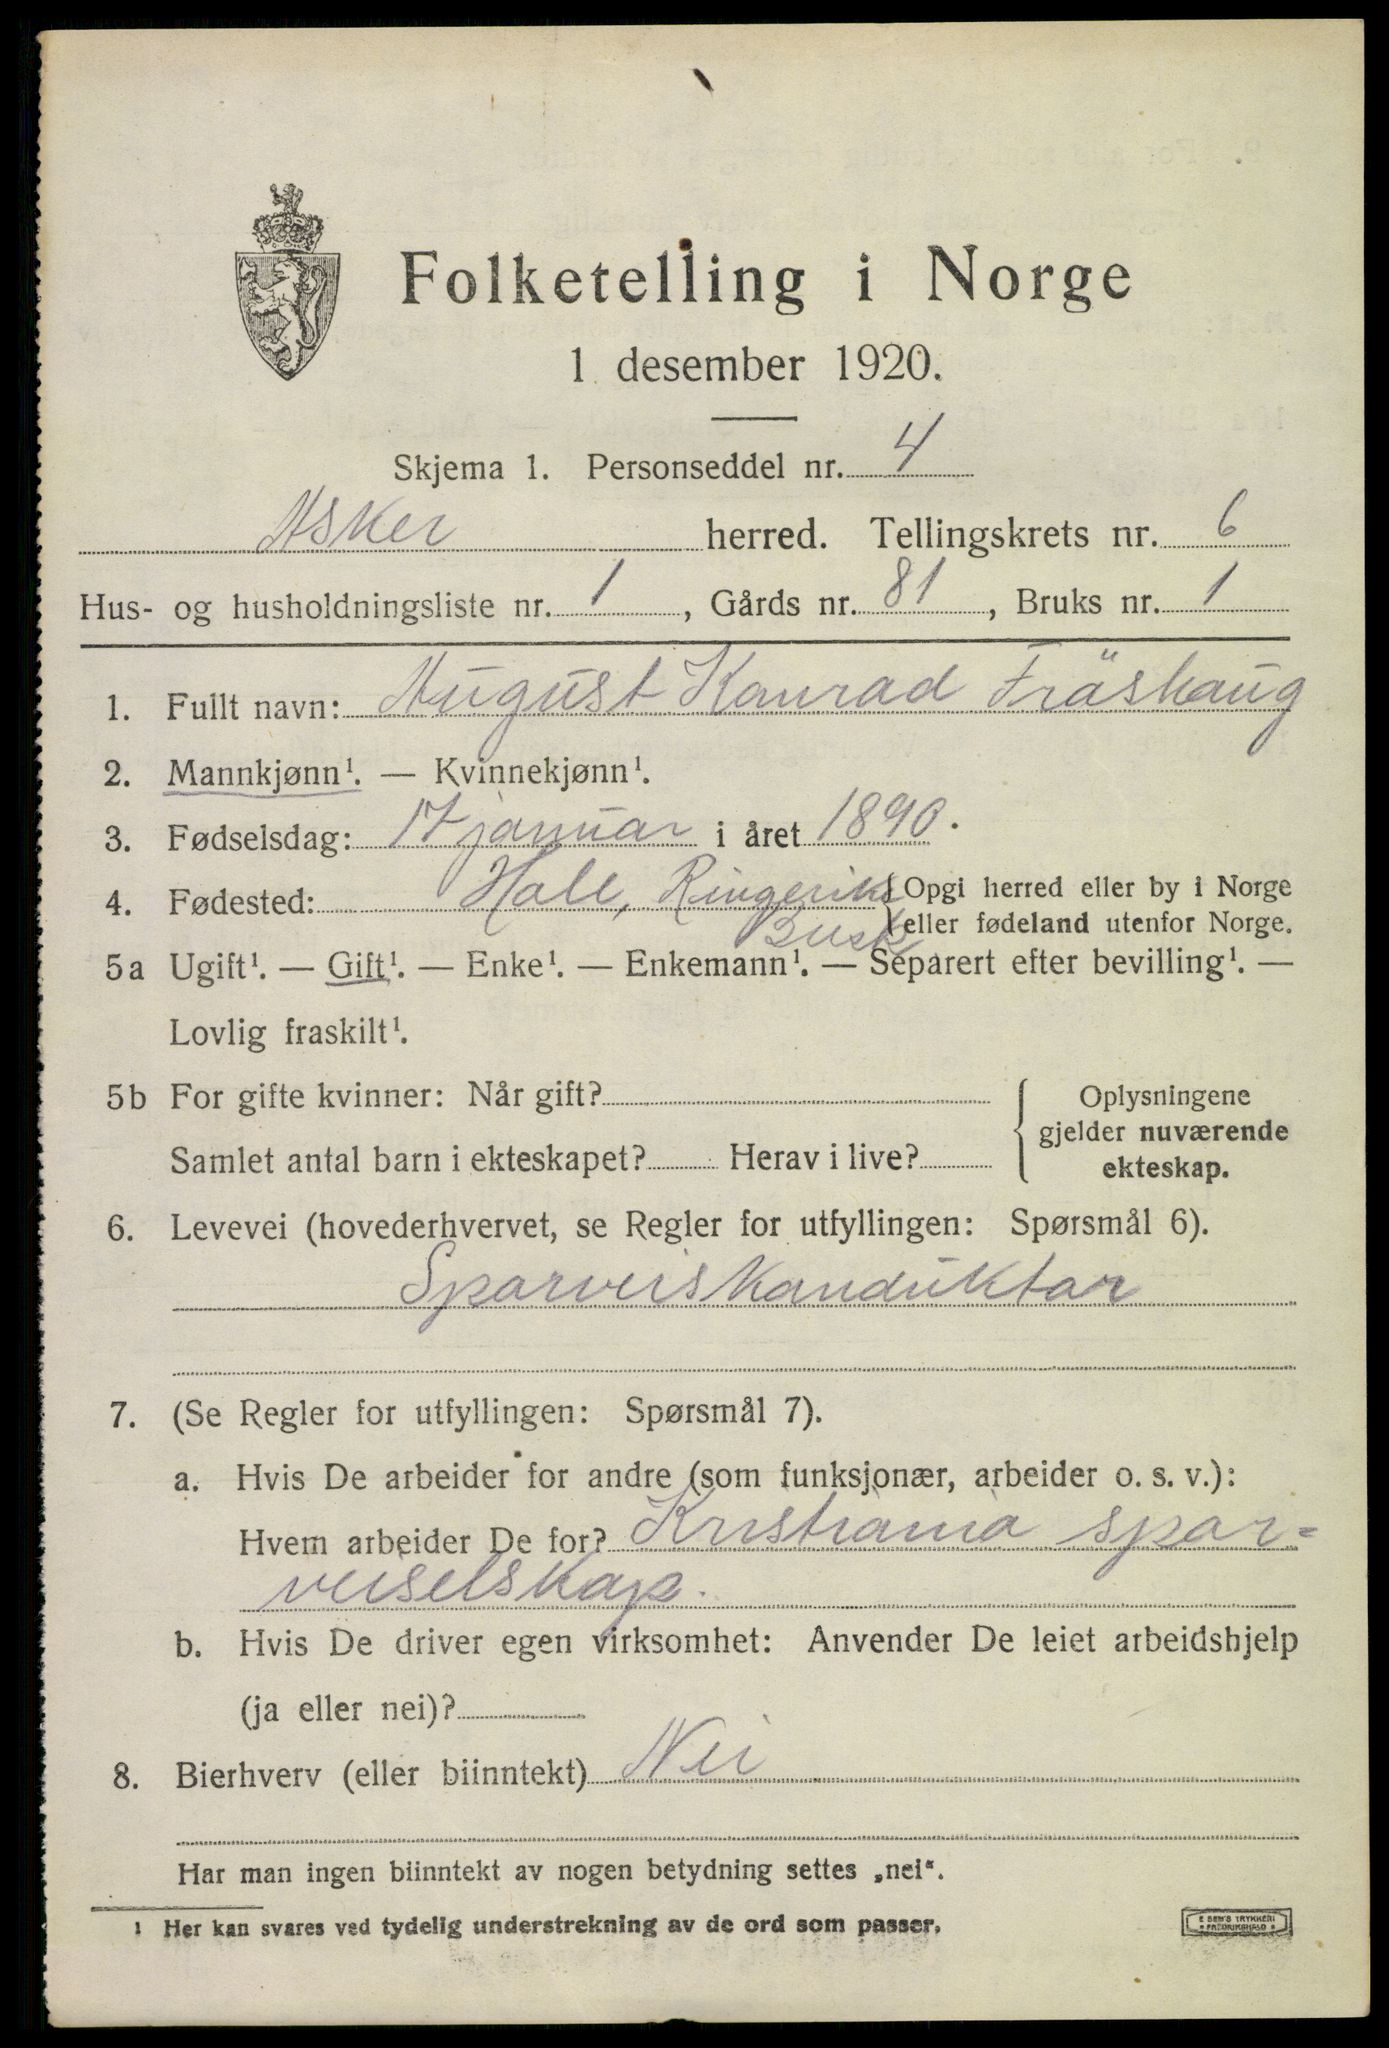 Folketelling i Norge
1 desember 1920.
Skjema 1. Personseddel nr. 4
Asker herred. Tellingskrets nr. 6
Hus- og husholdningsliste nr. 1, Gårds nr. 81, Bruks nr. 1
1. Fullt navn: August Konrad Fräshaug
2. Mannkjønn¹. — Kvinnekjønn¹.
3. Fødselsdag: 17 januar i året 1890.
4. Fødested: Hole, Ringerike { Opgi herred eller by i Norge
Busk eller fødeland utenfor Norge.
5a Ugift¹. — Gift¹. — Enke¹. — Enkemann¹. — Separert efter bevilling¹. —
Lovlig fraskilt¹.
5b For gifte kvinner: Når gift?
Samlet antal barn i ekteskapet? Herav i live?
Oplysningene
gjelder nuværende
ekteskap.
6. Levevei (hovederhvervet, se Regler for utfyllingen: Spørsmål 6).
Sporveiskonduktør
7. (Se Regler for utfyllingen: Spørsmål 7).
a. Hvis De arbeider for andre (som funksjonær, arbeider o. s. v.):
Hvem arbeider De for? Kristiania spor-
veiselskap.
b. Hvis De driver egen virksomhet: Anvender De leiet arbeidshjelp
(ja eller nei)?
8. Bierhverv (eller biinntekt) Nei
Har man ingen biinntekt av nogen betydning settes „nei“.
1 Her kan svares ved tydelig understrekning av de ord som passer.
E SEM'S TRYKKERI
FREDRIKSHALD